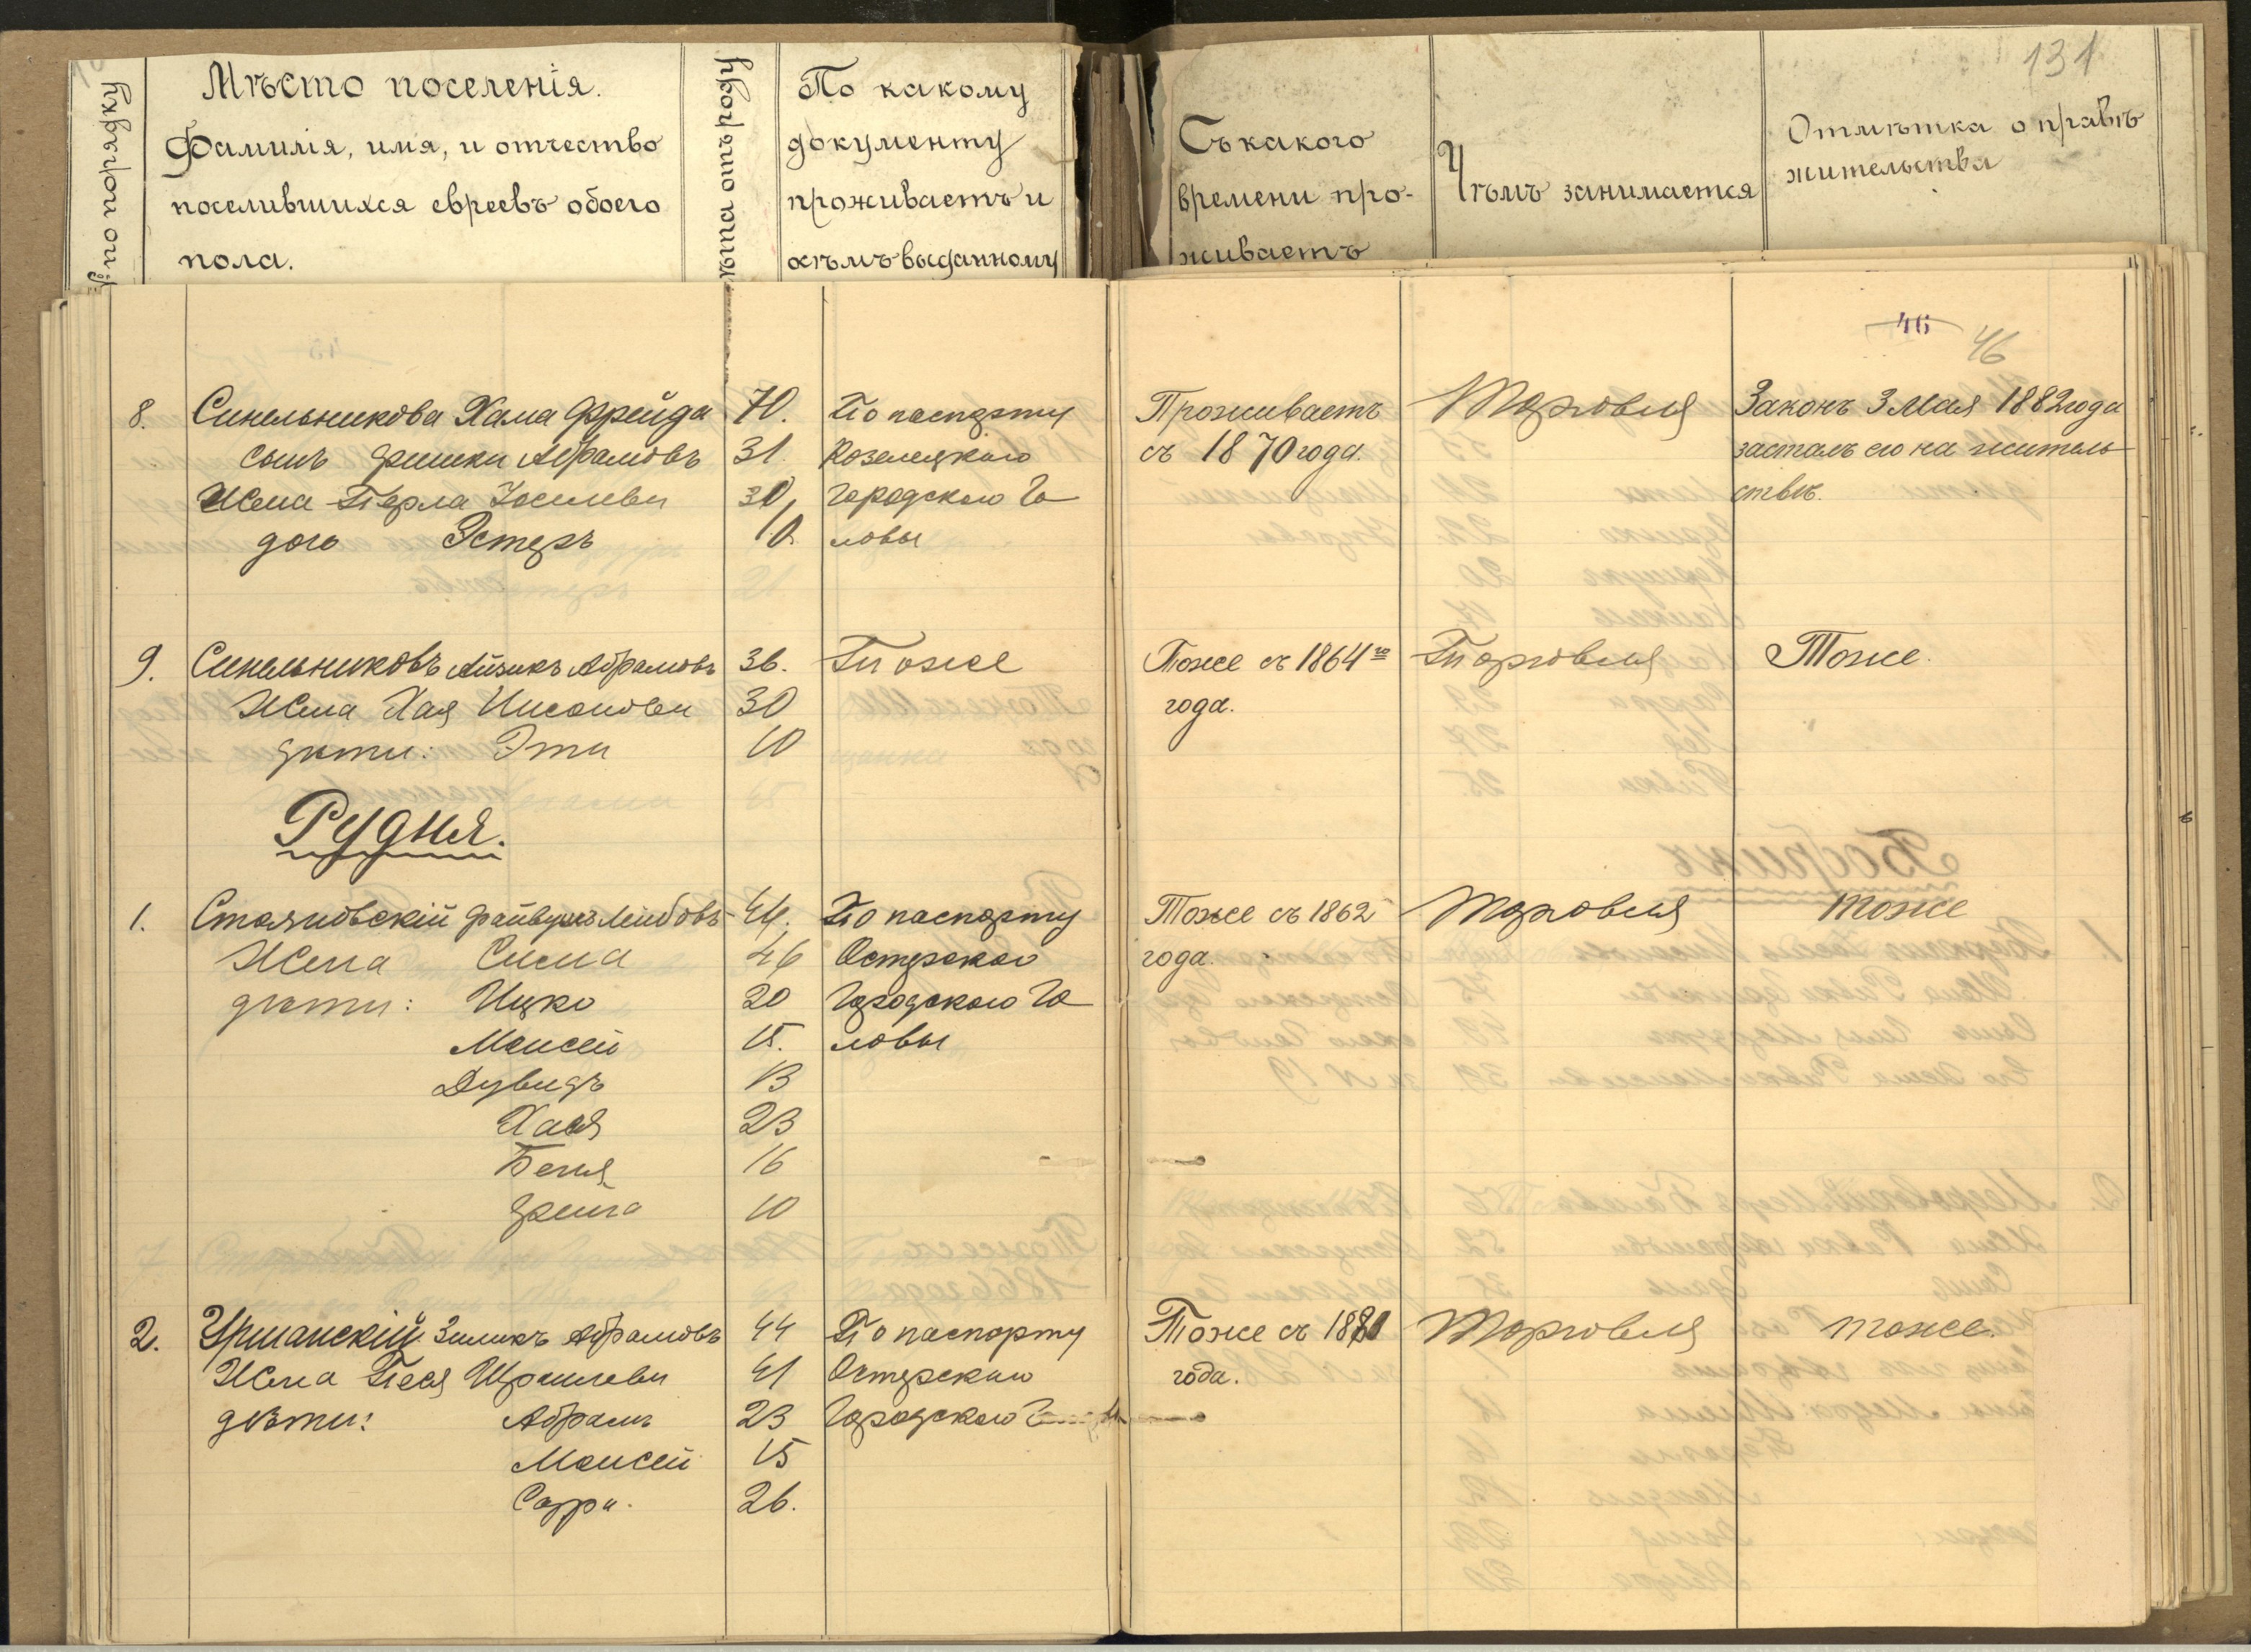 131
№ по порядку
Мѣсто поселенія.
Фамилія, имя, и отчество
поселившихся евреевъ обоего
пола.
Лѣта отъ роду
По какому
документу
проживаетъ и
кѣмъ выданному
Съ какого
времени про-
живаетъ
Чѣмъ занимается
Отмѣтка о правѣ
жительства
46
46
8. Синельникова Хама Фрейда 70. По паспорту Проживаетъ Торговля Законъ 3 Мая 1882 года
сынъ Абрамовъ 31. Козелецкаго съ 1870 года. засталъ его на житель
Жена Перла 30, Городского Го ствѣ.
дочь Эстеръ 10. ловы
9. Синельниковъ Айзикъ Абрамовъ 36. Тоже Тоже съ 1864 го Торговля Тоже.
Жена Хая 30 года.
дѣти: Эти 10
Рудня.
1. Стояновскій Файвушъ Лейбовъ 44. По паспорту Тоже съ 1862 Торговля тоже
Жена Сима 46 Остерскаго года.
дѣти: Ицко 20 Городского Го
Моисей 15. ловы
Дувидъ 13
Хася 23
Беня 16
10
2. Урманскій Зиликъ Абрамовъ 44 По паспорту Тоже съ Торговля тоже.
Жена Песя 41 Остерскаго года.
дѣти: Абрамъ 23 Городского
Моисей 15
Сарра. 26.